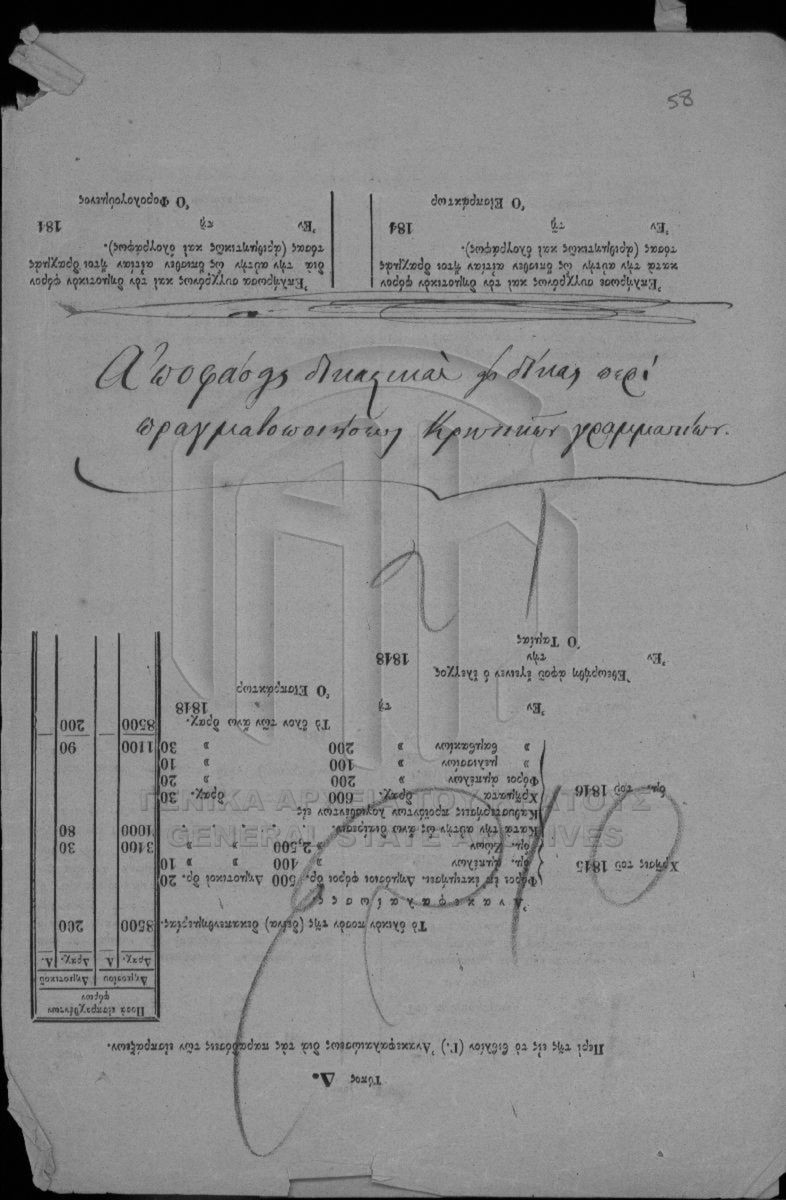 58
Ἀποφάσεις δικαστικαὶ
περὶ
πραγματοποιήσεως Κρητικῶν γραμματίων.
Τύπος Δ.
Περὶ τῆς εἰς τὸ βιβλίον (Γ.) Ἀνακεφαλαιώσεως διὰ τὰς παραδόσεις τῶν εἰσπράξεων.
Ποσὰ εἰσπραχθέντων
φόρων
Δημοσίου Δημοτικοῦ
Δραχ. Λ. Δραχ. Λ.
Τὸ ὁλικὸν ποσὸν τῆς (δεῖνα) δεκαπενθημερίας. 8500 200
Ἀνακεφαλαίωσις
Χρῆσις τοῦ 1845
Φόροι ἐπ' ἐκτιμήσει. Δημόσιοι φόροι δρ. 500 Δημοτικοὶ δρ. 20
ὁμ. ἀμπέλων » 400 » » 10
ὁμ. ζώων » 2,500 » » 3400 30
Κατὰ τὴν αὐτὴν ὡς ἄνω διαίρεσιν. 1000 80
ὁμ. τοῦ 1846
Καθυστερήσεις προϊόντων λογισθέντων εἰς
Χρήματα δραχ. 600 δραχ. 30
Φόροι ἀμπέλων » 200 » 20
» μελισσίων » 100 » 10
» βαμβακίων » 200 » 30 1100 90
Τὸ ὅλον τῶν ἄνω δραχ. 8500 200
Ἐν τῇ 1848
Ὁ Εἰσπράκτωρ
Ἐθεωρήθη ἀφοῦ ἔγεινεν ὁ ἔλεγχος
Ἐν τὴν 1848
Ὁ Ταμίας
Ἐπλήρωσε συγχρόνως καὶ τὸν δημοτικὸν φόρον
κατὰ τὴν αὐτὴν ὡς ὄπισθεν αἰτίαν ἤτοι δραχμὰς
τόσας (ἀριθμητικῶς καὶ ὁλογράφως).
Ἐν τῇ 184
Ὁ Εἰσπράκτωρ
Ἐπλήρωσα συγχρόνως καὶ τὸν δημοτικὸν φόρον
διὰ τὴν αὐτὴν ὡς ὄπισθεν αἰτίαν ἤτοι δραχμὰς
τόσας (ἀριθμητικῶς καὶ ὁλογράφως).
Ἐν τῇ 184
Ὁ Φορολογούμενος
ΓΕΝΙΚΑ ΑΡΧΕΙΑ ΤΟΥ ΚΡΑΤΟΥΣ
GENERAL STATE ARCHIVES